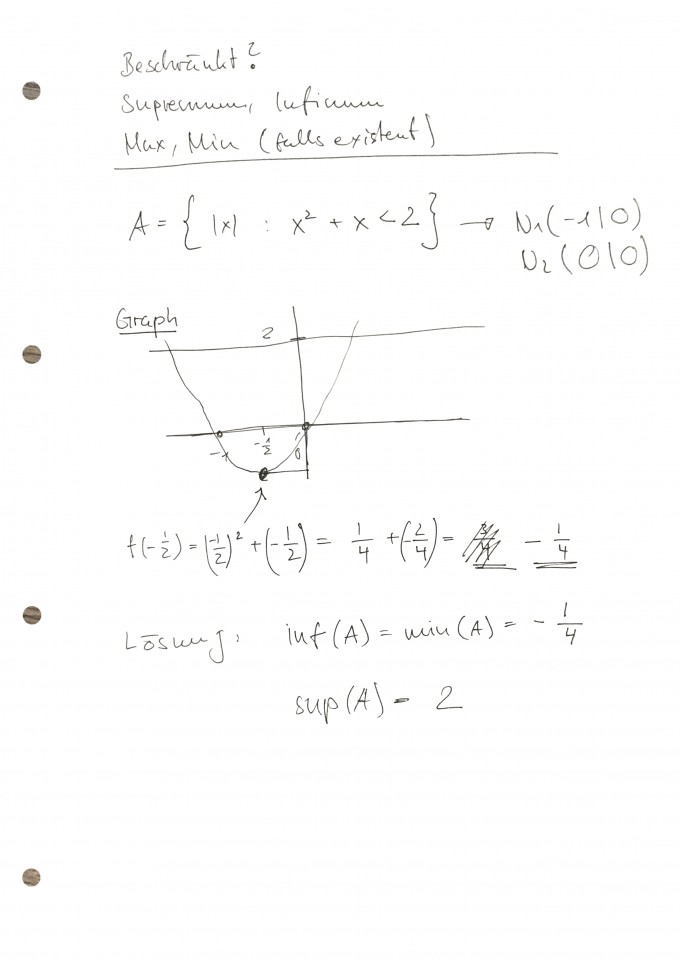 Beschränkt?
Supremum, Infimum
Max, Min (falls existent)
A = { |x| : x² + x < 2 } → N₁(-1|0)
N₂(0|0)
Graph
2
-1 -1/2 0
f(-1/2) = (-1/2)² + (-1/2) = 1/4 + (-2/4) = - 1/4
Lösung: inf(A) = min(A) = - 1/4
sup(A) = 2